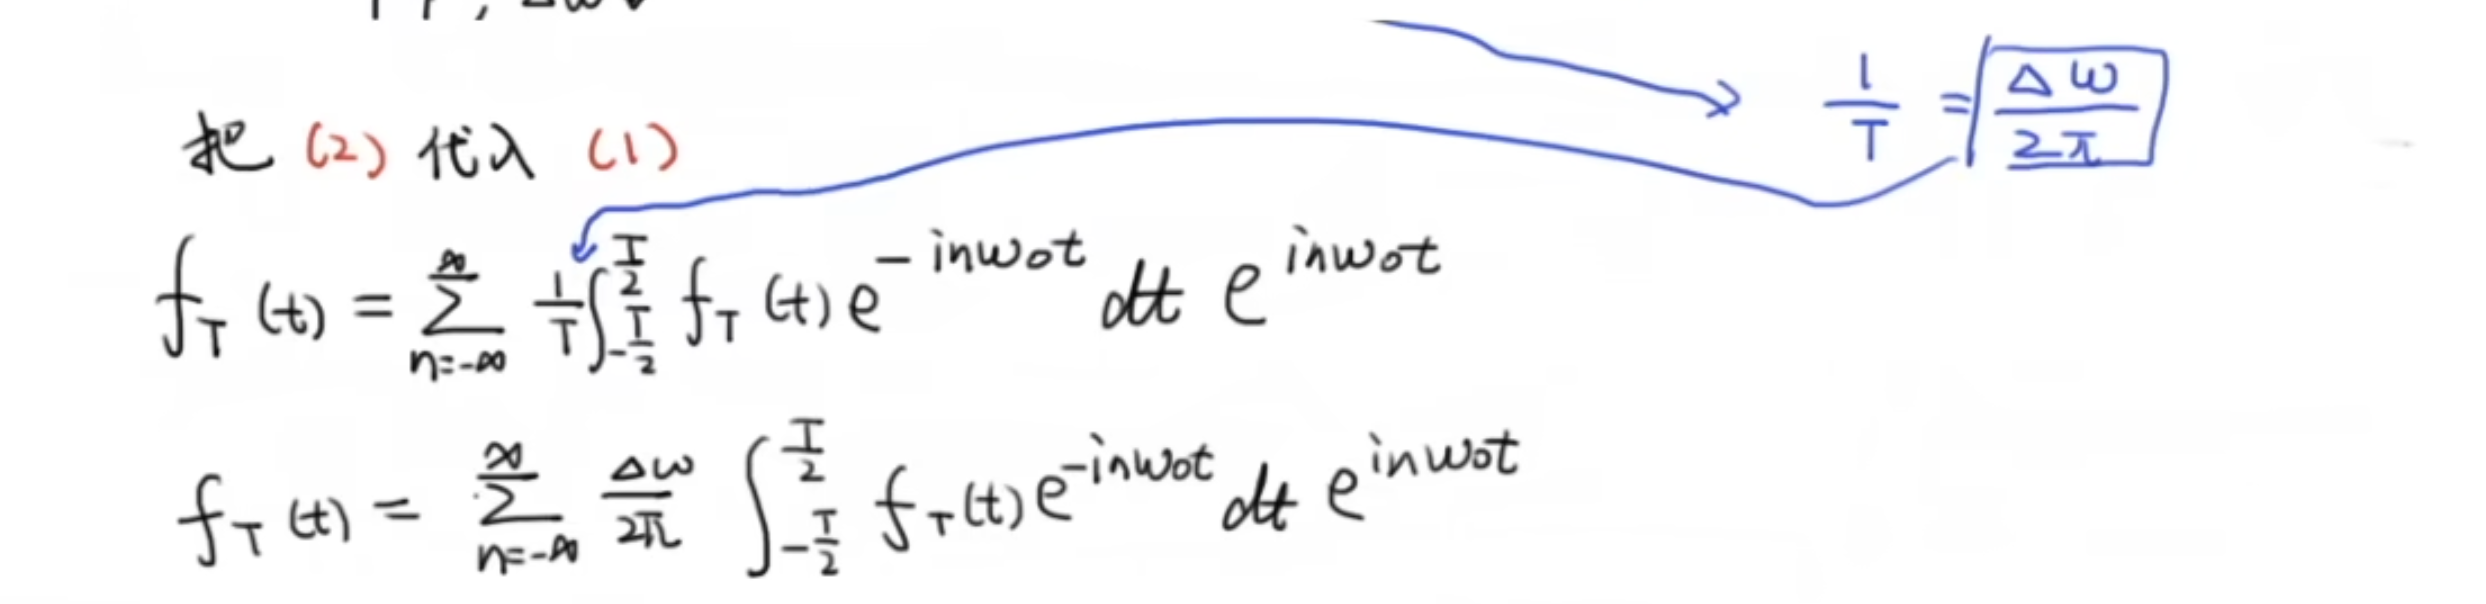 1/T = Δω/2π
把 (2) 代入 (1)
f_T(t) = ∑_{n=-∞}^{∞} 1/T ∫_{-T/2}^{T/2} f_T(t) e^{-inω₀t} dt e^{inω₀t}
f_T(t) = ∑_{n=-∞}^{∞} Δω/2π ∫_{-T/2}^{T/2} f_T(t) e^{-inω₀t} dt e^{inω₀t}